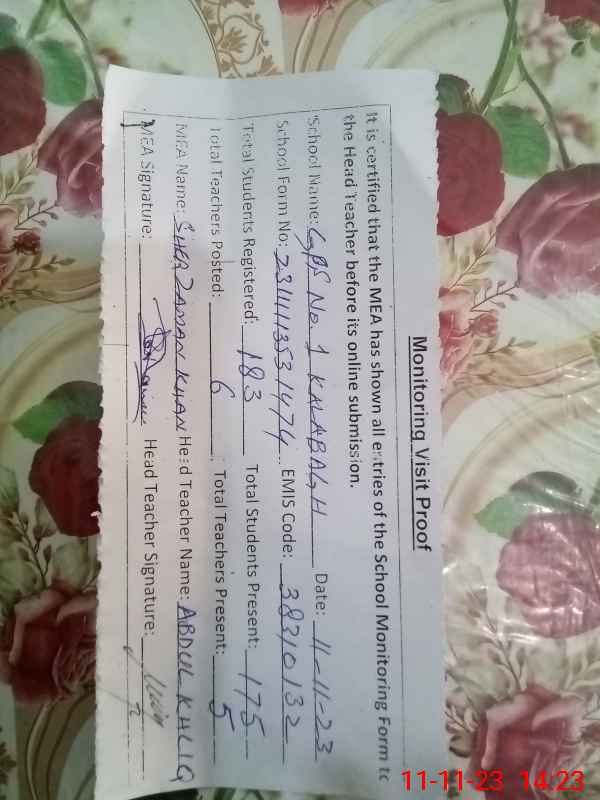 Monitoring Visit Proof
It is certified that the MEA has shown all entries of the School Monitoring Form to
the Head Teacher before its online submission.
School Name: GPS No. 1 KALABAGH Date: 11-11-23
School Form No: 2311113531474 EMIS Code: 38310132
Total Students Registered: 183 Total Students Present: 175
Total Teachers Posted: 6 Total Teachers Present: 5
MEA Name: SHER ZAMAN KHAN Head Teacher Name: ABDUL KHALIQ
MEA Signature: Head Teacher Signature:
11-11-23 14:23